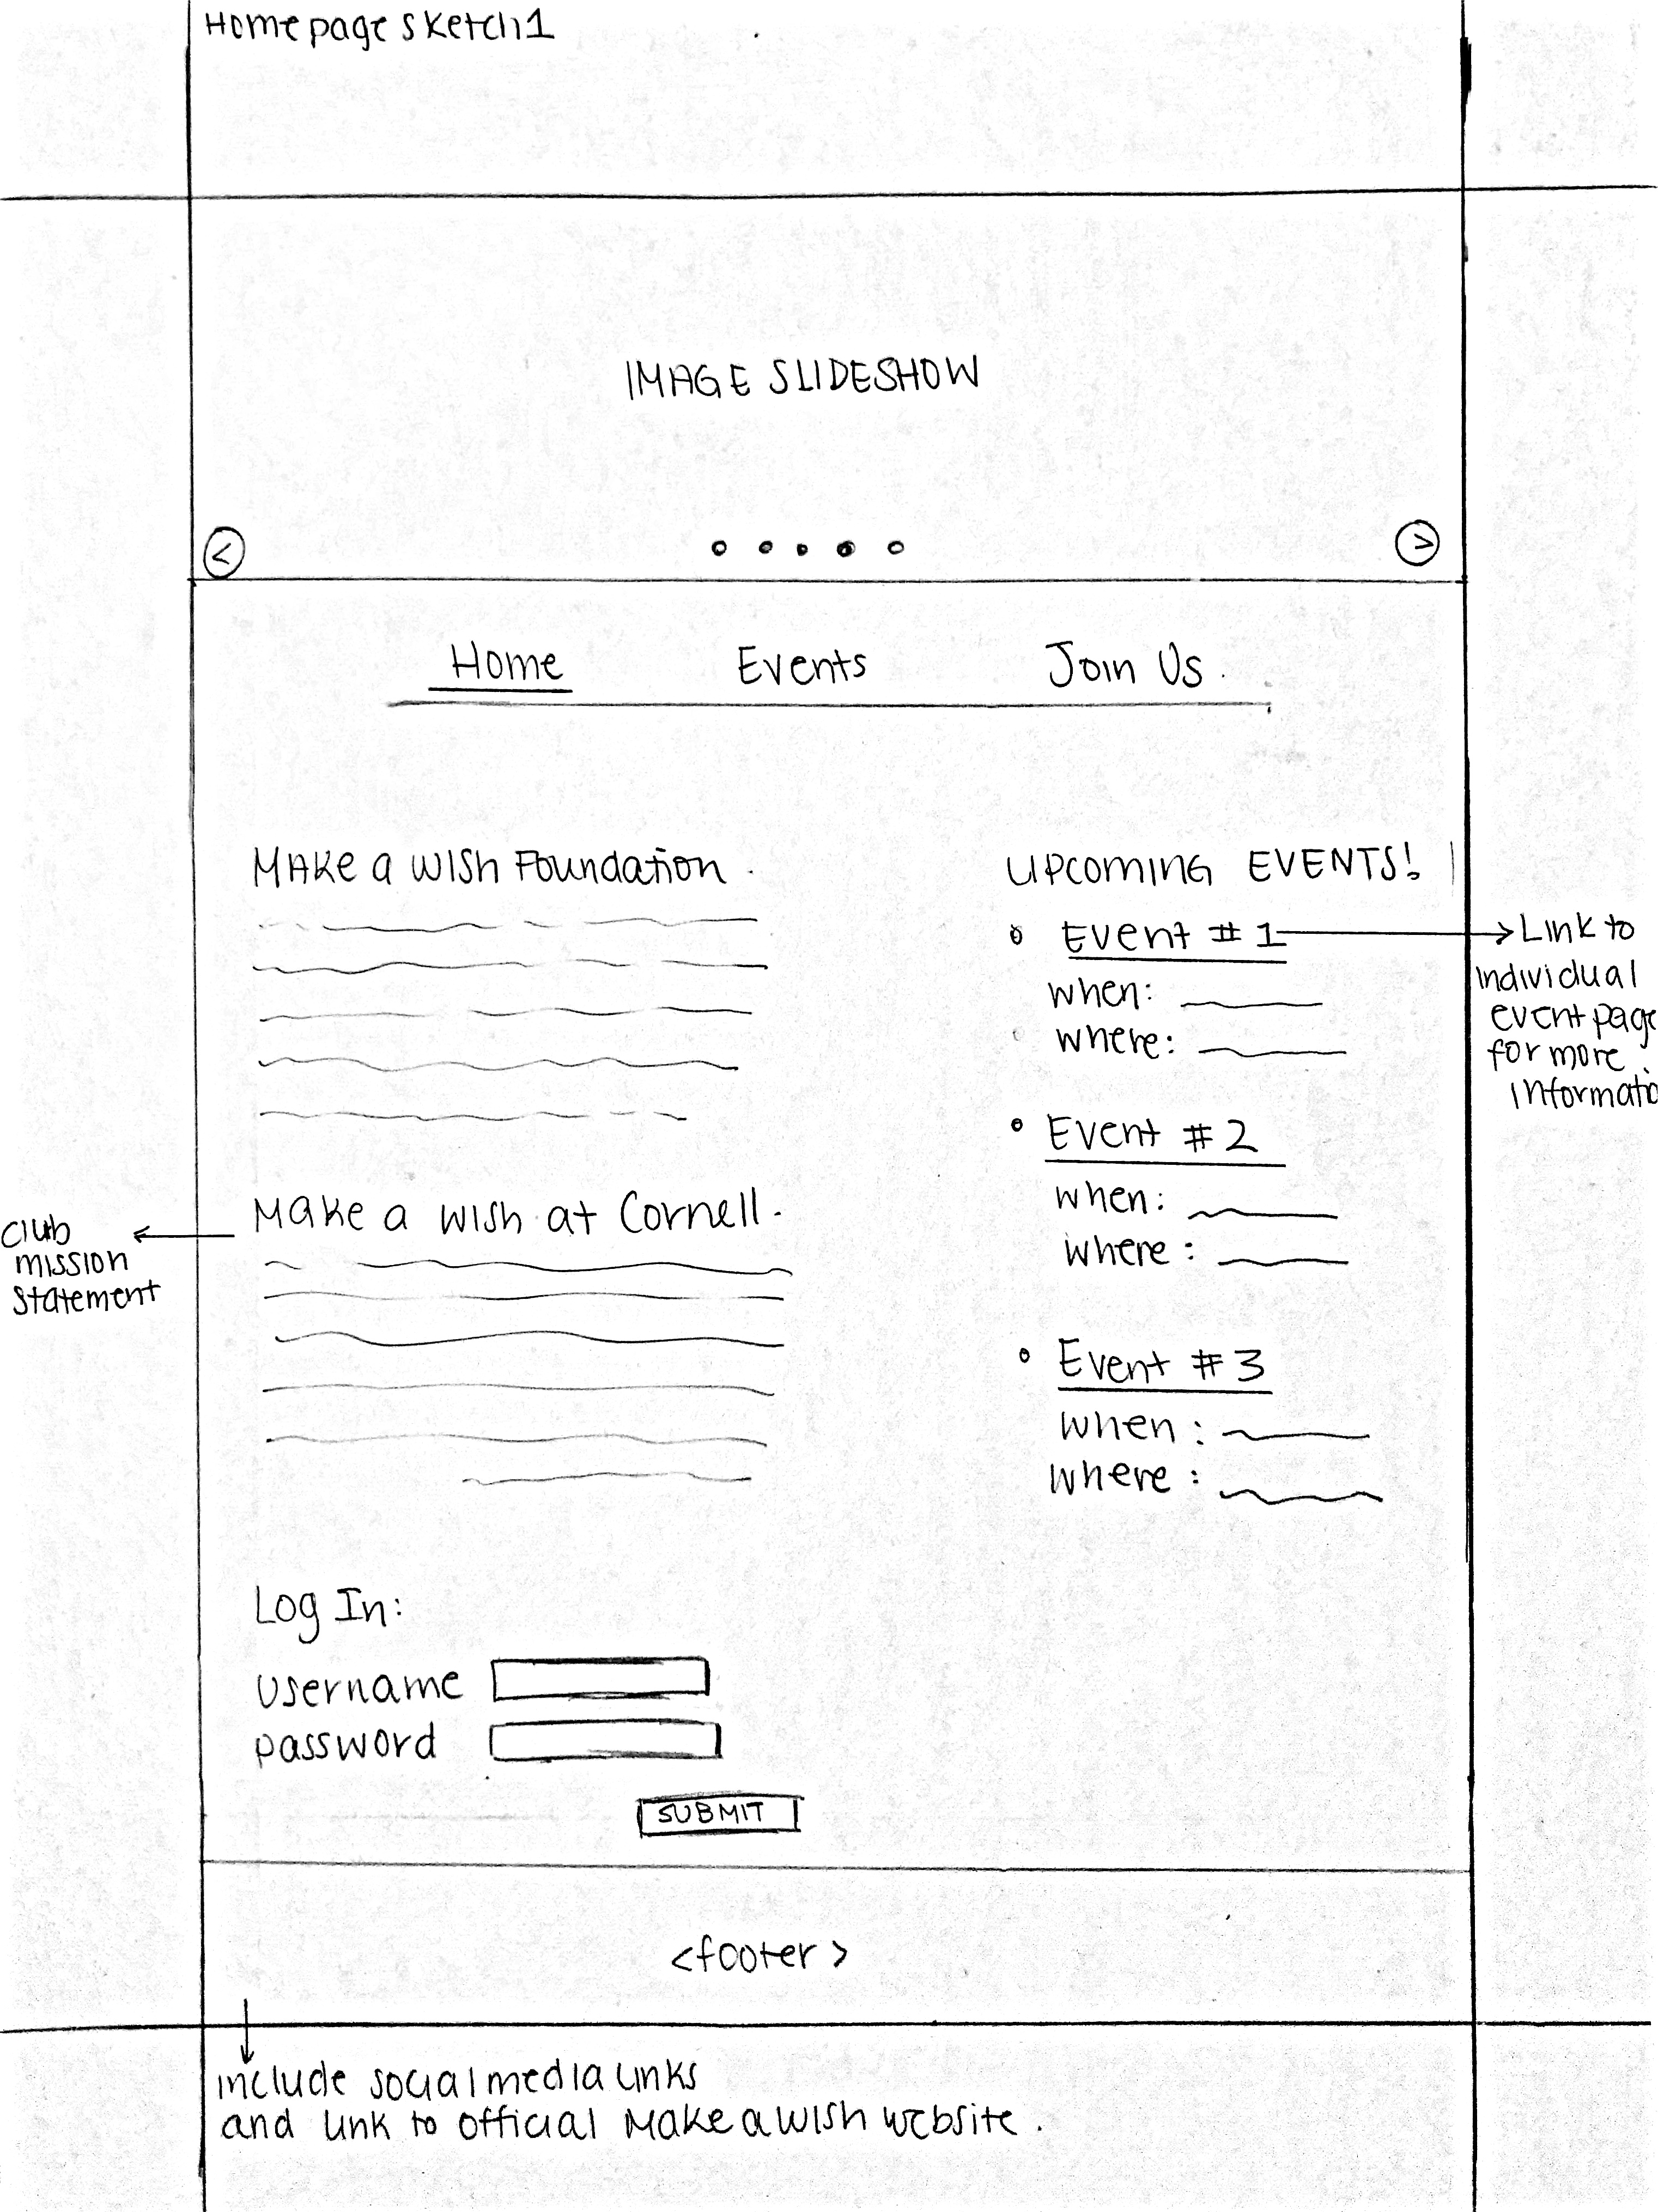 Homepage sketch 1
IMAGE SLIDESHOW
<
>
Home Events Join Us
Make a Wish Foundation
Make a Wish at Cornell
club
mission
statement
Log In:
username
password
SUBMIT
UPCOMING EVENTS!
Event #1
when:
where:
Link to
individual
event page
for more
informatio
Event #2
when:
where:
Event #3
when:
where:
<footer>
include social media links
and link to official Make a Wish website.